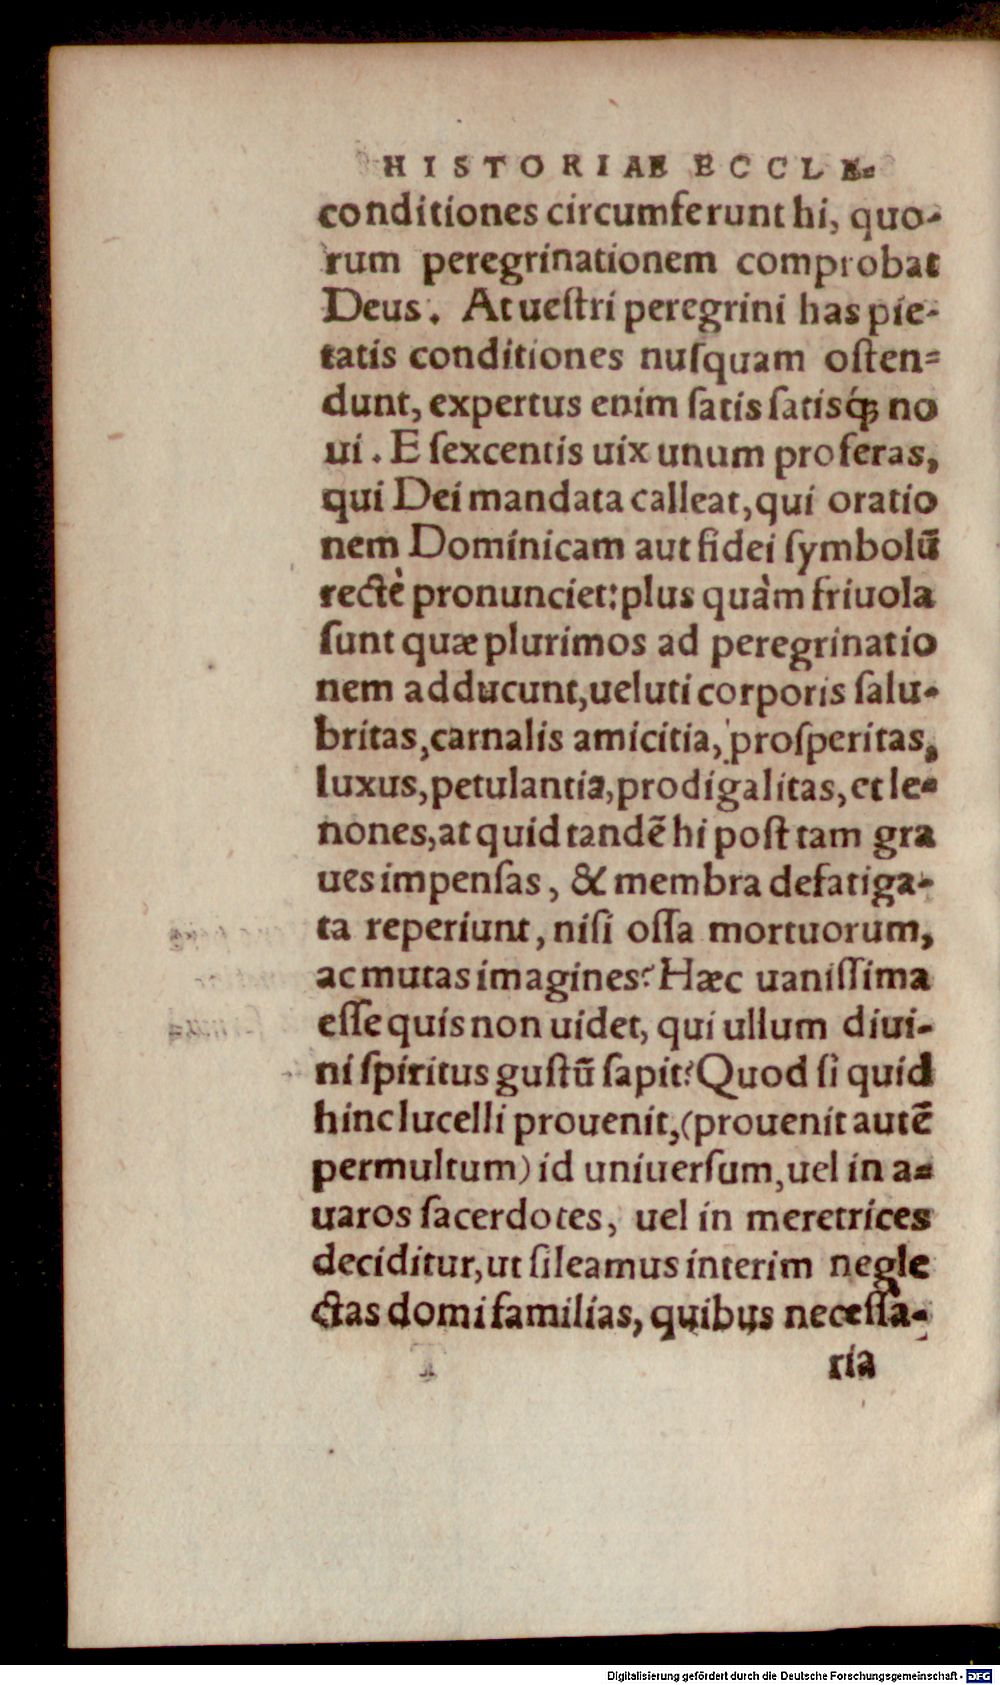 HISTORIAE ECCLE-
conditiones circumferunt hi, quo-
rum peregrinationem comprobat
Deus. At ueſtri peregrini has pie-
tatis conditiones nuſquam oſten-
dunt, expertus enim ſatis ſatisq́; no
ui. E ſexcentis uix unum proferas,
qui Dei mandata calleat, qui oratio
nem Dominicam aut fidei ſymbolũ
rectè pronunciet: plus quàm friuola
ſunt quæ plurimos ad peregrinatio
nem adducunt, ueluti corporis ſalu-
britas, carnalis amicitia, proſperitas,
luxus, petulantia, prodigalitas, et le-
nones, at quid tandẽ hi poſt tam gra
ues impenſas, & membra defatiga-
ta reperiunt, niſi oſſa mortuorum,
ac mutas imagines? Hæc uaniſſima
eſſe quis non uidet, qui ullum diui-
ni ſpiritus guſtũ ſapit? Quod ſi quid
hinc lucelli prouenit, (prouenit autẽ
permultum) id uniuerſum, uel in a-
uaros ſacerdotes, uel in meretrices
deciditur, ut ſileamus interim negle
ctas domi familias, quibus neceſſa-
ria
Digitalisierung gefördert durch die Deutsche Forschungsgemeinschaft - DFG